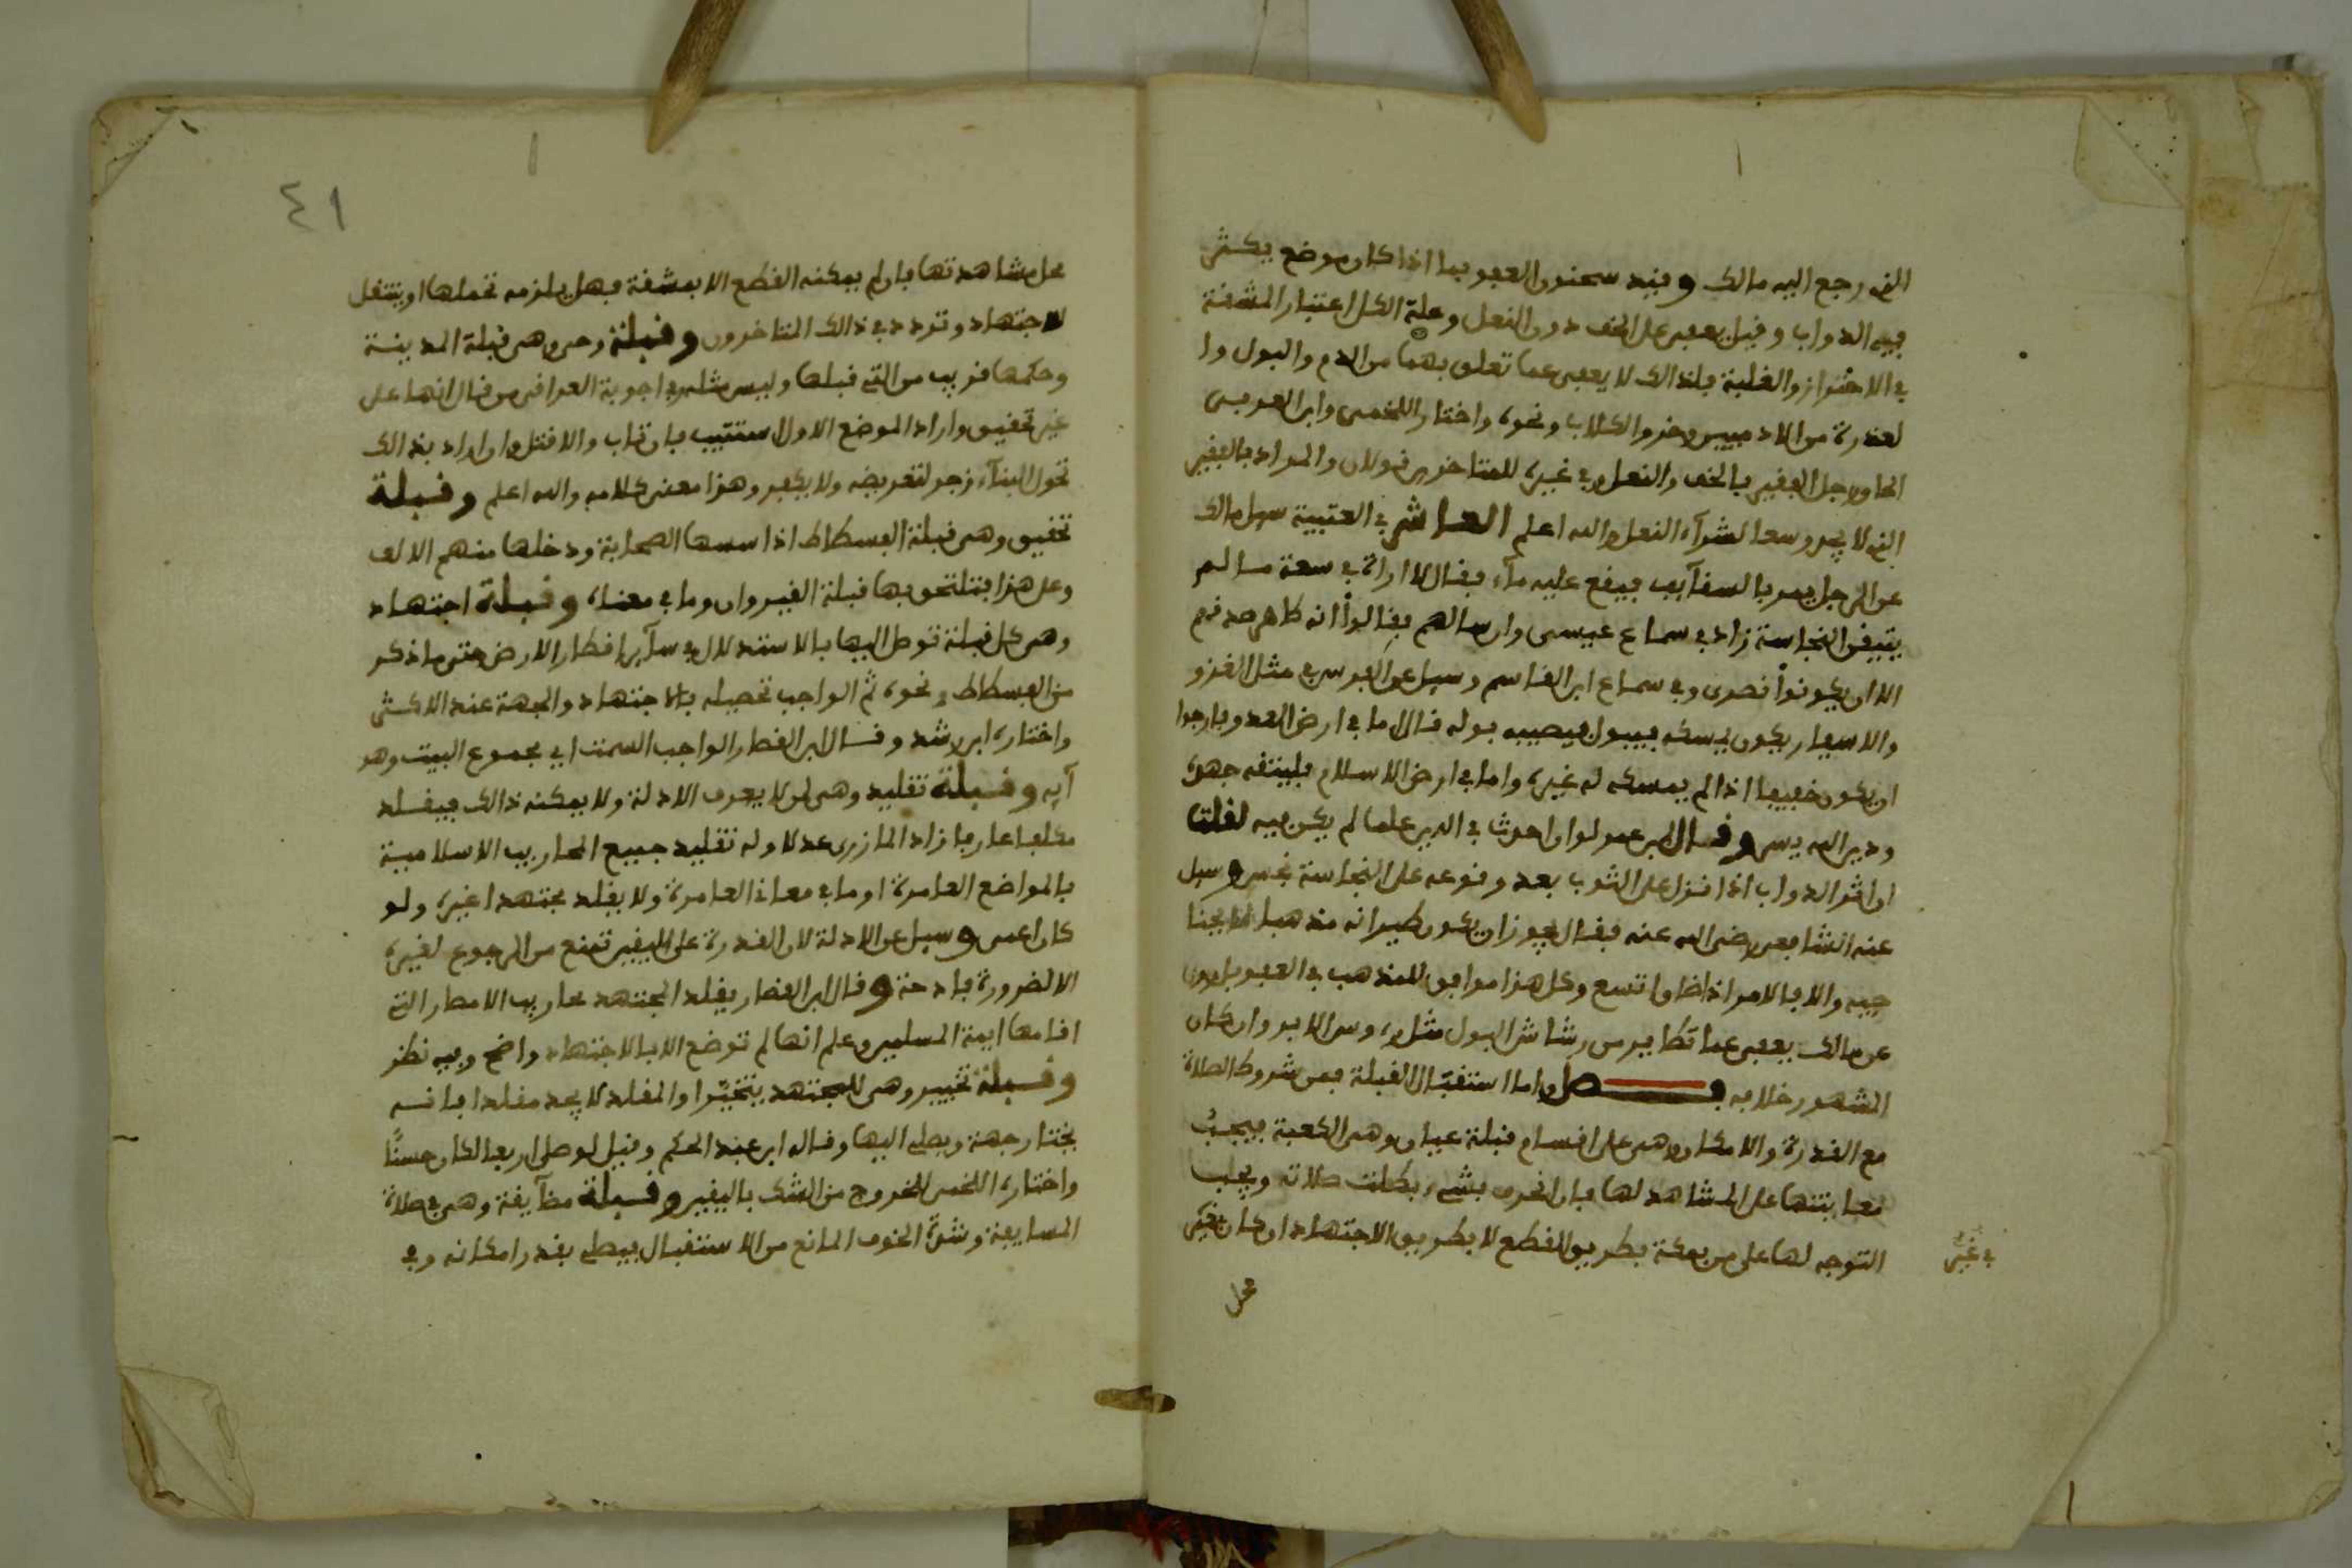 الذي رجع اليه مالك وقيد سحنون العفو بما اذا كان بموضع يكثر
فيه الدواب وقيل يعفى على الخف دون النعل وعلة الكل اعتبار المشقة
في الاحتراز والغلبة فلذالك لا يعفى عما تعلق بهما من الدم والبول وا
لعذرة من الادميين وخرو الكلاب ونحوه واختار اللخمي وابن العربي
الحاق رجل الفقير بالخف والنعل وفي غيره للمتاخرين قولان والمراد بالفقير
الذي لا يجد وسعا لشرآء النعل والله اعلم العاشر في العتبية سيل مالك
عن الرجل يمر بالسقآيف فيقع عليه مآء فقال اراه في سعة ما لم
يتيقن النجاسة زاد في سماع عيسى وان سالهم فقالوا انه طاهر صدقهم
الا ان يكونوا نصرى وفي سماع ابن القاسم وسيل عن الفرس في مثل الغزو
والاسفار يكون يمسكه فيبول فيصيبه بوله قال اما في ارض العدو فارجوا
ان يكون خفيفا اذا لم يمسكه له غيره واما في ارض الاسلام فليتقه جهده
ودين الله يسر وقال ابن عمر لو ان احرث في الدين علما لم يكن فيه لقلتا
ان اثر الدواب اذا نزل على الثوب بعد وقوعه على النجاسة نجس وسيل
عنه الشافعي رضي الله عنه فقال يجوز ان يكون طيرانه مذهبا
فيه والا فالامر اذا ضاق اتسع وكل هذا موافق للمذهب في العفو بل روي
عن مالك يعفى عما تطاير من رشاش البول مثل روس الابر وان كان
المشهور خلافه فصل واما استقبال القبلة فمن شروط الصلاة
مع القدرة والامكان وهي على اقسام قبلة عيان وهي الكعبة فيجب
معاينتها على المشاهد لها فان انحرف بشيء بطلت صلاته ويجب
التوجه لها على من بمكة بطريق القطع لا بطريق الاجتهاد ان كان
في غير
محل
٤١
محل مشاهدتها فان لم يمكنه القطع الا بمشقة فهل يلزمه تحملها او ينتقل
للاجتهاد وتردد في ذالك المتاخرون وقبلة وحي وهي قبلة المدينة
وحكمها قريب من التي قبلها وليس مثله في اجوبة القرافي من قال انها على
غير تحقيق واراد الموضع الاول استتيب فان تاب والا قتل وان اراد بذالك
تحول البنآء زجر لتعريضه ولا يكفر وهذا معنى كلامه والله اعلم وقبلة
تحقيق وهي قبلة الفسطاط اذ اسسها الصحابة ودخلها منهم الالف
وعلى هذا فتلتحق بها قبلة القيروان وما في معناه وقبلة اجتهاد
وهي كل قبلة توصل اليها بالاستدلال في سآير اقطار الارض حتى ما ذكر
من الفسطاط ونحوه ثم الواجب تحصيله بالاجتهاد والجهة عند الاكثر
واختاره ابن رشد وقال ابن القصار الواجب السمت اي مجموع البيت وهو
آيه وقبلة تقليد وهي لمن لا يعرف الادلة ولا يمكنه ذالك فيقلد
مكلفا عارفا زاد المازري عدلا وله تقليد جميع المحاريب الاسلامية
بالمواضع العامرة او ما في معنا العامرة ولا يقلد مجتهدا غيره ولو
كان اعمى وسيل عن الادلة لان القدرة على اليقين تمنع من الرجوع لغيره
الا لضرورة فادحة وقال ابن القصار يقلد المجتهد محاريب الامصار التي
اقامها ايمة المسلمين وعلم انها لم توضع الا بالاجتهاد واضح وفيه نظر
وقبلة تخيير وهي للمجتهد يتحير او المقلد لا يجد مقلدا فانه
يختار جهة ويصلي اليها وقال ابن عبد الحكم وقيل لو صلى اربعا لكان حسنا
واختاره اللخمي للخروج من الشك باليقين وقبلة مضآيقة وهي في صلاة
المسايفة وشدة الخوف المانع من الاستقبال فيصلي بقدر امكانه وفي